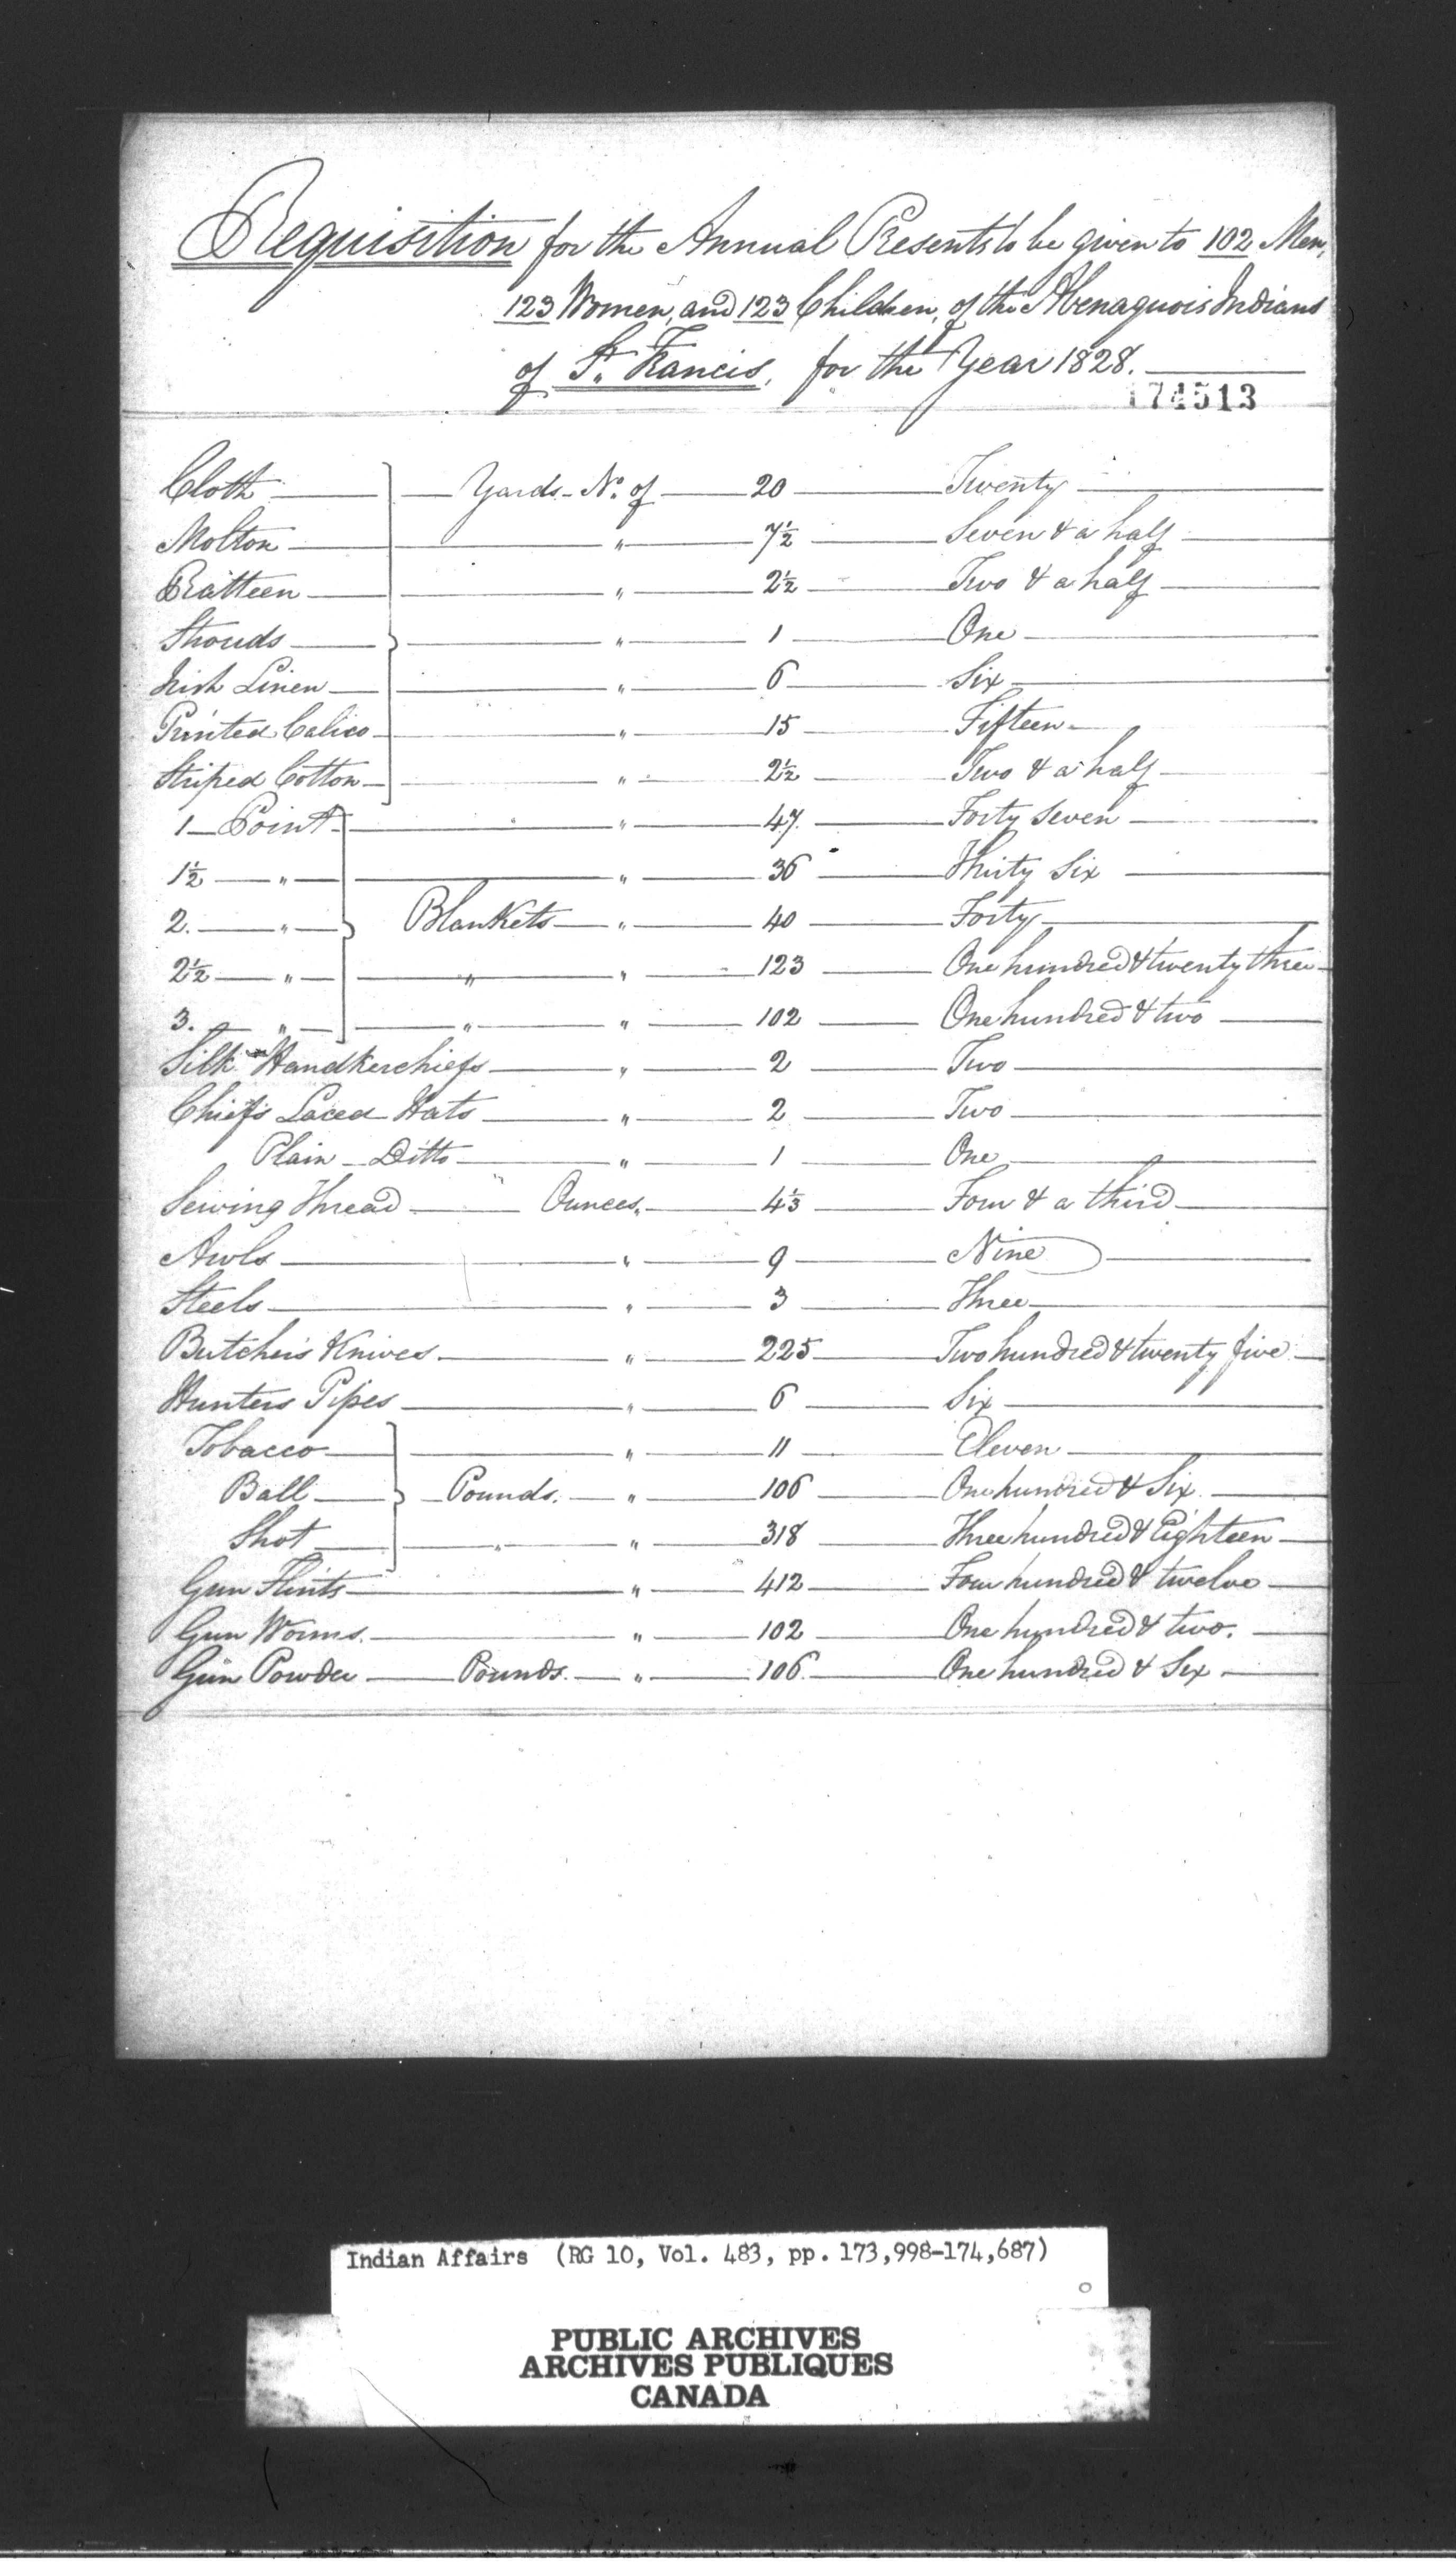 Requisition for the Annual Presents to be given to 102 Men,
123 Women, and 123 Children, of the Abenaquois Indians
of St. Francis, for the Year 1828.
174513
Cloth Yards No. of 20 Twenty
Molton " 7½ Seven & a half
Ratteen " 2½ Two & a half
Strouds " 1 One
Irish Linen " 6 Six
Printed Calico " 15 Fifteen
Striped Cotton " 2½ Two & a half
1 Point " 47 Forty Seven
1½ " " 36 Thirty Six
2. " Blankets " 40 Forty
2½ " " " 123 One hundred & twenty three
3. " " " 102 One hundred & two
Silk Handkerchiefs " 2 Two
Chiefs Laced Hats " 2 Two
Plain Ditto " 1 One
Sewing Thread " Ounces " 4⅓ Four & a third
Awls " 9 Nine
Steels " 3 Three
Butchers Knives " 225 Two hundred & twenty five
Hunters Pipes " 6 Six
Tobacco " 11 Eleven
Ball Pounds. " 106 One hundred & Six
Shot " " 318 Three hundred & Eighteen
Gun Flints " 412 Four hundred & twelve
Gun Worms. " 102 One hundred & two.
Gun Powder Pounds. " 106 One hundred & Six
Indian Affairs (RG 10, Vol. 483, pp. 173,998-174,687)
PUBLIC ARCHIVES
ARCHIVES PUBLIQUES
CANADA